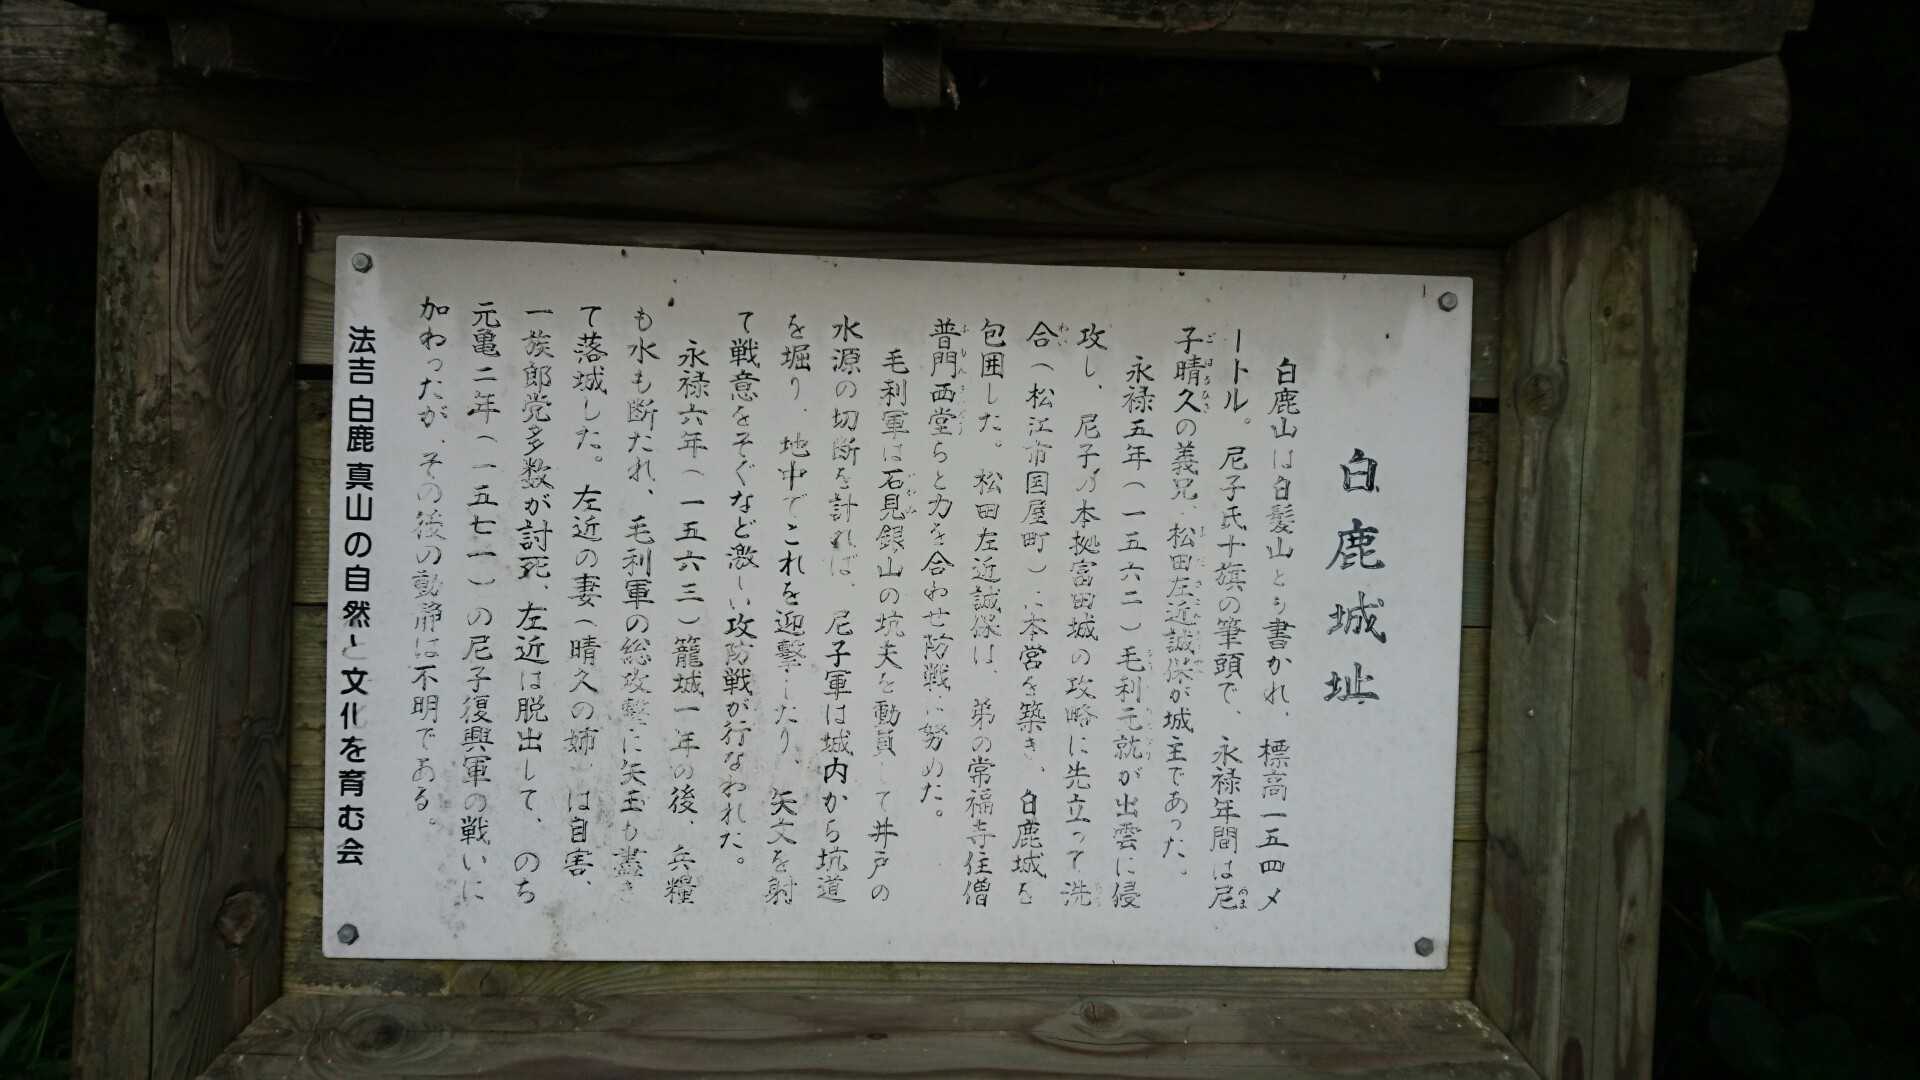 白鹿城址
白鹿山は白髪山とも書かれ、標高一五四メ
ートル。尼子氏十旗の筆頭で、永禄年間は尼
子晴久の義兄、松田左近誠保が城主であった。
永禄五年(一五六二)毛利元就が出雲に侵
攻し、尼子の本拠富田城の攻略に先立って洗
合(松江市国屋町)に本営を築き、白鹿城を
包囲した。松田左近誠保は、弟の常福寺住僧
普門西堂らと力を合わせ防戦に努めた。
毛利軍は石見銀山の坑夫を動員して井戸の
水源の切断を計れば、尼子軍は城内から坑道
を堀り、地中でこれを迎撃したり、矢文を射
て戦意をそぐなど激しい攻防戦が行なわれた。
永禄六年(一五六三)籠城一年の後、兵糧
も水も断たれ、毛利軍の総攻撃に矢玉も盡き
て落城した。左近の妻(晴久の姉)は自害、
一族郎党多数が討死、左近は脱出して、のち
元亀二年(一五七一)の尼子復興軍の戦いに
加わったが、その後の動静は不明である。
法吉白鹿真山の自然と文化を育む会